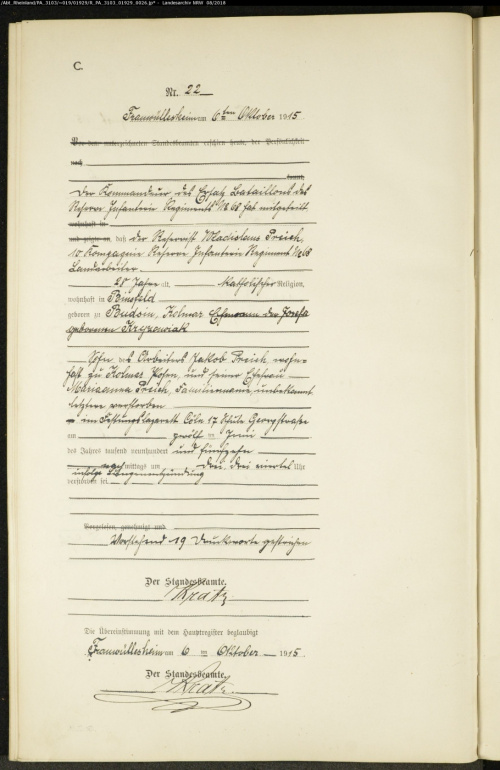 /Abt_Rheinland/PA_3103/~019/01929/R_PA_3103_01929_0026.jp* - Landesarchiv NRW 08/2018
C.
Nr. 22
Frauwüllesheim am 6ten Oktober 1915
Vor dem unterzeichneten Standesbeamten erschien heute, der Persönlichkeit
nach
kannt,
Der Kommandeur des Ersatz Bataillons des
Reserve Infanterie Regiments No 68 hat mitgeteilt
wohnhaft in
und zeigte an, daß der Reservist Wladislaus Preich,
10 Kompagnie Reserve Infanterie Regiment No 68
Landarbeiter
28 Jahre alt, katholischer Religion,
wohnhaft in Binsfeld
geboren zu Budsin, Kolmar Ehemann der Josefa
geborenen
Sohn des Arbeiters Jakob Preich wohn-
haft zu Kolmar Posen, und seiner Ehefrau
Marianna Preich, Familienname unbekannt
letztere verstorben
im Festungslazarett Cöln 17 Schule Georgstraße
am zwölften Juni
des Jahres tausend neunhundert und fünfzehn
nachmittags um drei drei viertel Uhr
infolge Lungenentzündung
verstorben sei.
Vorgelesen, genehmigt und
Vorstehend 19 Druckworte gestrichen
Der Standesbeamte.
Kratz
Die Übereinstimmung mit dem Hauptregister beglaubigt
Frauwüllesheim am 6 ten Oktober 1915
Der Standesbeamte.
Kratz